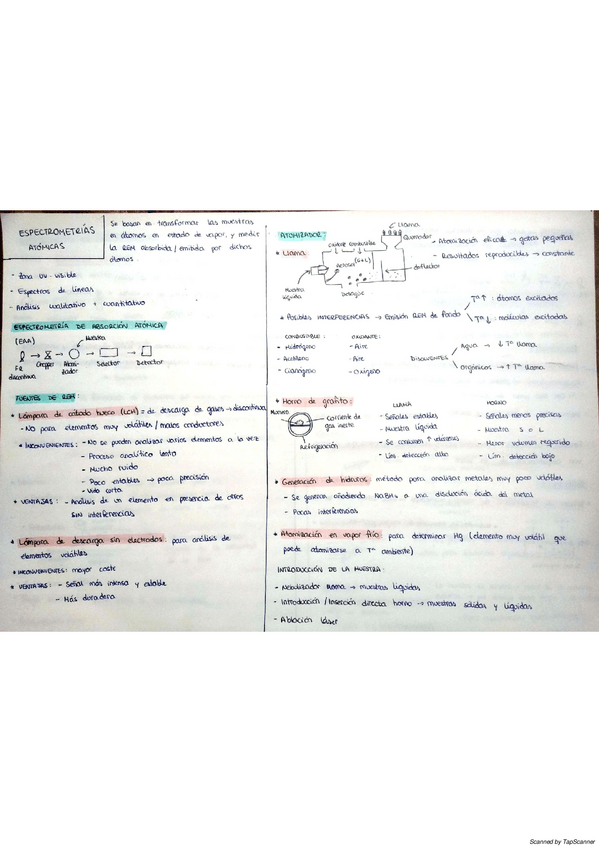 ESPECTROMETRÍAS
ATÓMICAS
Se basan en transformar las muestras
en átomos en estado de vapor, y medir
la REM absorbida / emitida por dichos
átomos.
- Zona UV-visible
- Espectros de líneas
- Análisis cualitativo + cuantitativo
ESPECTROMETRÍA DE ABSORCIÓN ATÓMICA
(EAA)
Muestra
FR
discontinua
Chopper
Atomizador
Selector
Detector
FUENTES DE REM:
* Lámpara de cátodo hueco (LCH) = de descarga de gases → discontinua
- NO para elementos muy volátiles / malos conductores
* INCONVENIENTES: - No se pueden analizar varios elementos a la vez
- Proceso analítico lento
- Mucho ruido
- Poco estables → poca precisión
- Vida corta
* VENTAJAS: - Análisis de un elemento en presencia de otros
SIN interferencias
* Lámpara de descarga sin electrodos: para análisis de
elementos volátiles
* INCONVENIENTES: mayor coste
* VENTAJAS: - Señal más intensa y estable
- Más duradera
ATOMIZADOR:
* Llama
Llama
Quemador
oxidante combustible
Aerosol (G+L)
deflector
Muestra
líquida
Desagüe
- Atomización eficaz → gotas pequeñas
- Resultados reproducibles → constante
* Posibles INTERFERENCIAS → Emisión REM de fondo
Tª ↑ : átomos excitados
Tª ↓ : moléculas excitadas
COMBUSTIBLE: OXIDANTE:
- Hidrógeno - Aire
- Acetileno - Aire
- Cianógeno - Oxígeno
DISOLVENTES
Agua → ↓ Tª llama
Orgánicos → ↑ Tª llama
* Horno de grafito:
Muestra
Corriente de
gas inerte
Refrigeración
LLAMA
- Señales estables
- Muestra líquida
- Se consumen ↑ volúmenes
- Lím detección alto
HORNO
- Señales menos precisas
- Muestra S o L
- Menor volumen requerido
- Lím detección bajo
* Generación de hidruros: método para analizar metales muy poco volátiles
- Se generan añadiendo NaBH₄ a una disolución ácida del metal
- Pocas interferencias
* Atomización en vapor frío: para determinar Hg (elemento muy volátil que
puede atomizarse a Tª ambiente)
INTRODUCCIÓN DE LA MUESTRA:
- Nebulizador llama → muestras líquidas
- Introducción / Inserción directa horno → muestras sólidas y líquidas
- Ablación láser
Scanned by TapScanner